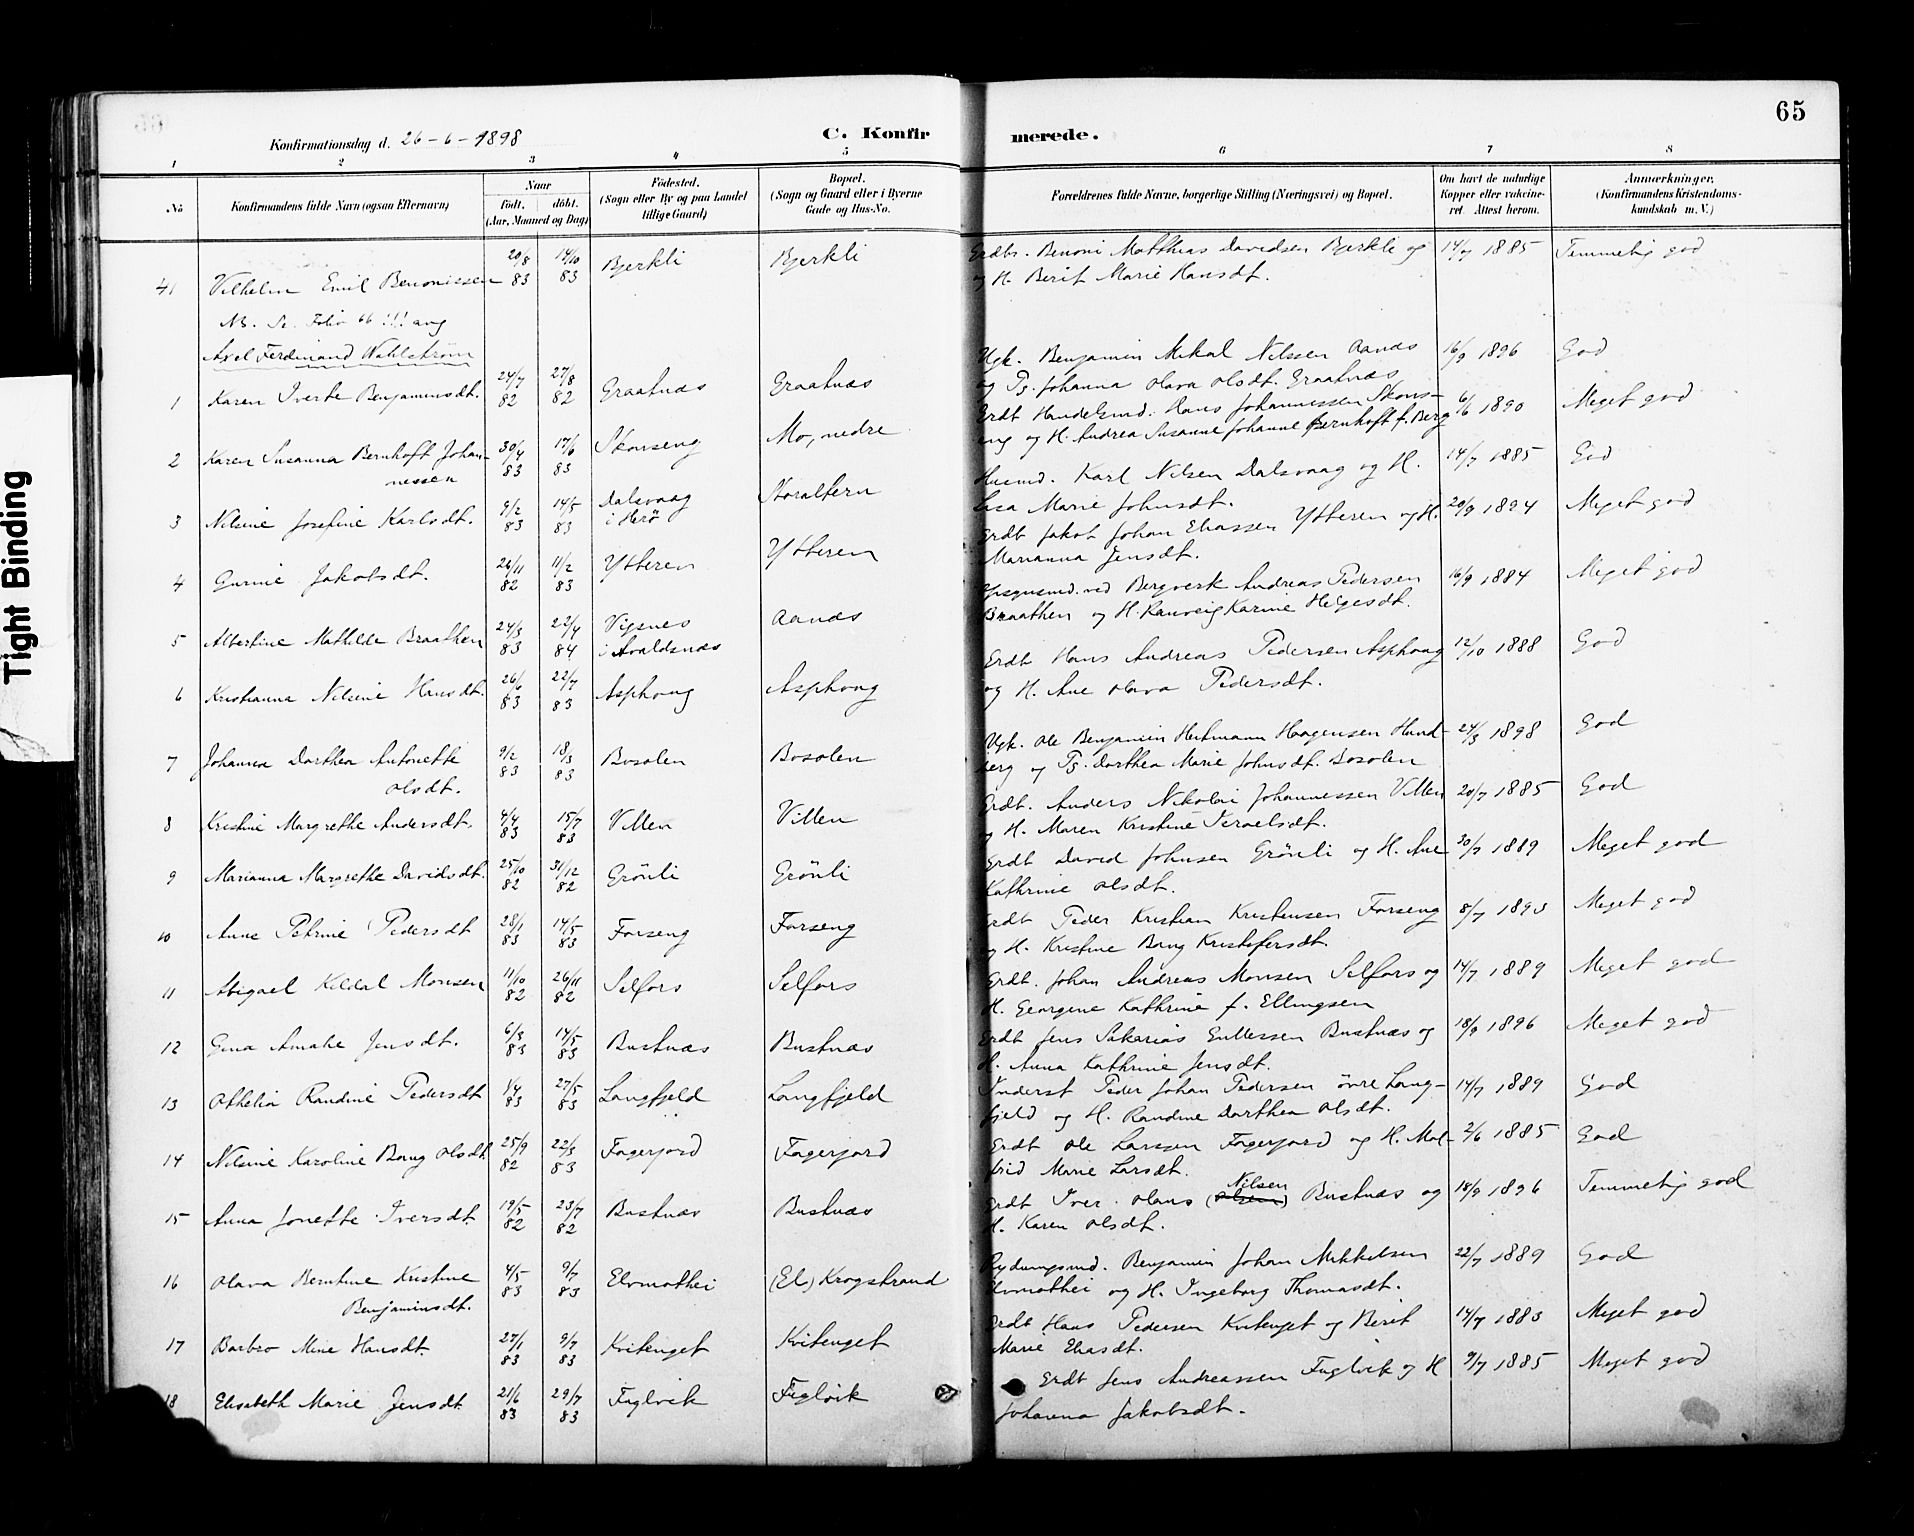 65
Konfirmationsdag d. 26-6-1898
C. Konfirmerede.
1 2 3 4 5 6 7 8
No Konfirmandens fulde Navn (ogsaa Efternavn) Naar Født, døbt. (Aar, Maaned og Dag) Fødested. (Sogn eller By og paa Landet tillige Gaard) Bopæl. (Sogn og Gaard eller i Byerne Gade og Hus-No. Forældrenes fulde Navne, borgerlige Stilling (Næringsvei) og Bopæl. Om havt de naturlige Kopper eller vaccineret. Attest herom. Anmærkninger. (Konfirmandens Kristendomskundskab m. V.)
41 Vilhelm Emil Benonissen 20/8 83 14/10 83 Bjerkli Bjerkli Erdbr. Benoni Matthias Davidsen Bjerkli og
og H. Berit Marie Hansdt. 14/7 1885 Temmelig god
NB. Se Folio 66 !!! ang
Axel Ferdinand Wahlstrøm
1 Karen Iverte Benjaminsdt. 24/7 82 27/8 82 Graatnæs Graatnæs Ugk. Benjamin Mikal Nilssen Aanæs
og Pg. Johanna Olava Olsdt. Graatnæs 16/9 1896 God
2 Karen Susanna Bernhoft Johannessen 30/4 83 17/6 83 Skonseng Mo, nedre Erdt Handelsmd. Hans Johannessen Skonseng
og H. Andrea Susanne Johanne Bernhoft f. Berg 6/6 1890 Meget god
3 Nilsine Josefine Karlsdt. 9/2 83 14/5 83 Dalsvaag i Herø Storalteren Husmd. Karl Nilsen Dalsvaag og H.
Lisa Marie Johnsdt. 14/7 1885 God
4 Gurine Jakobsdt. 26/11 82 11/2 83 Ytteren Ytteren Erdt Jakob Johan Eliassen Ytteren og H.
Marianna Jensdt. 20/9 1894 Meget god
5 Albertine Mathilde Braathen 24/3 83 22/4 84 Vigsnes i Avaldsnæs Aanæs ved Bergverk Andreas Pedersen
Braathen og H. Ranveig Karine Helgesdt. 16/9 1884 Meget god
6 Kristianna Nilsine Hansdt. 26/6 83 22/7 83 Asphoug Asphoug Erdt Hans Andreas Pedersen Asphoug
og H. Ane Olava Pedersdt. 12/10 1888 God
7 Johanna Dorthea Antonette Olsdt. 9/2 83 18/3 83 Bosolen Bosolen Ugk. Ole Benjamin Hertmann Haagensen Hundberg
og Pg. Dorthea Marie Johnsdt. Bosolen 24/3 1898 God
8 Kristine Margrethe Andersdt. 4/4 83 15/7 83 Villen Villen Erdt. Anders Nikolai Johannessen Villen
og H. Maren Kristine Israelsdt. 20/7 1885 God
9 Marianna Margrethe Davidsdt. 25/10 82 31/12 82 Grönli Grönli Erdt David Johnsen Grönli og H. Ane
Kathrine Olsdt. 30/7 1889 Meget god
10 Anne Petrine Pedersdt 28/1 83 14/5 83 Forseng Forseng Erdt Peder Kristian Kristensen Forseng
og H. Kristine Bang Kristofersdt. 8/7 1893 Meget god
11 Abigael Kildal Monsen 11/10 82 26/11 82 Selfors Selfors Erdt. Johan Andreas Monsen Selfors og
H. Georgine Kathrine f. Ellingsen 14/7 1889 Meget god
12 Gina Amalie Jensdt. 6/3 83 14/5 83 Bustnæs Bustnæs Erdt Jens Sakarias Gullessen Bustnæs og
H. Anna Kathrine Jensdt. 18/9 1896 Meget god
13 Othelia Randine Pedersdt 1/4 83 27/5 83 Langfjeld Langfjeld Inderst Peder Johan Pedersen övre Langfjeld
og H. Randine Dorthea Olsdt. 14/7 1889 God
14 Nilsine Karoline Bang Olsdt 25/9 82 22/3 83 Fagerjord Fagerjord Erdt Ole Larssen Fagerjord og H. Malfrid
Marie Larsdt. 2/6 1885 God
15 Anna Jonette Iversdt 19/5 82 23/7 82 Bustnæs Bustnæs Erdt Iver Olaus (Olsen) Nilsen Bustnæs og
H. Karen Olsdt. 18/9 1896 Temmelig god
16 Olava Berntine Kristine Benjaminsdt. 4/5 83 9/7 83 Elvmothei (El) Krogstrand Rydningsmd. Benjamin Johan Mikkelsen
Elvmothei og H. Ingeborg Thomasdt. 22/7 1889 God
17 Barbro Mine Hansdt. 27/1 83 9/7 83 Kvitenget Kvitenget Erdt Hans Pedersen Kvitenget og Berit
Marie Eliasdt. 14/7 1883 Meget god
18 Elisabeth Marie Jensdt 21/6 83 29/7 83 Fuglvik Fuglvik Erdt Jens Andreassen Fuglvik og H
Johanna Jakobsdt. 9/7 1885 Meget god
Tight Binding